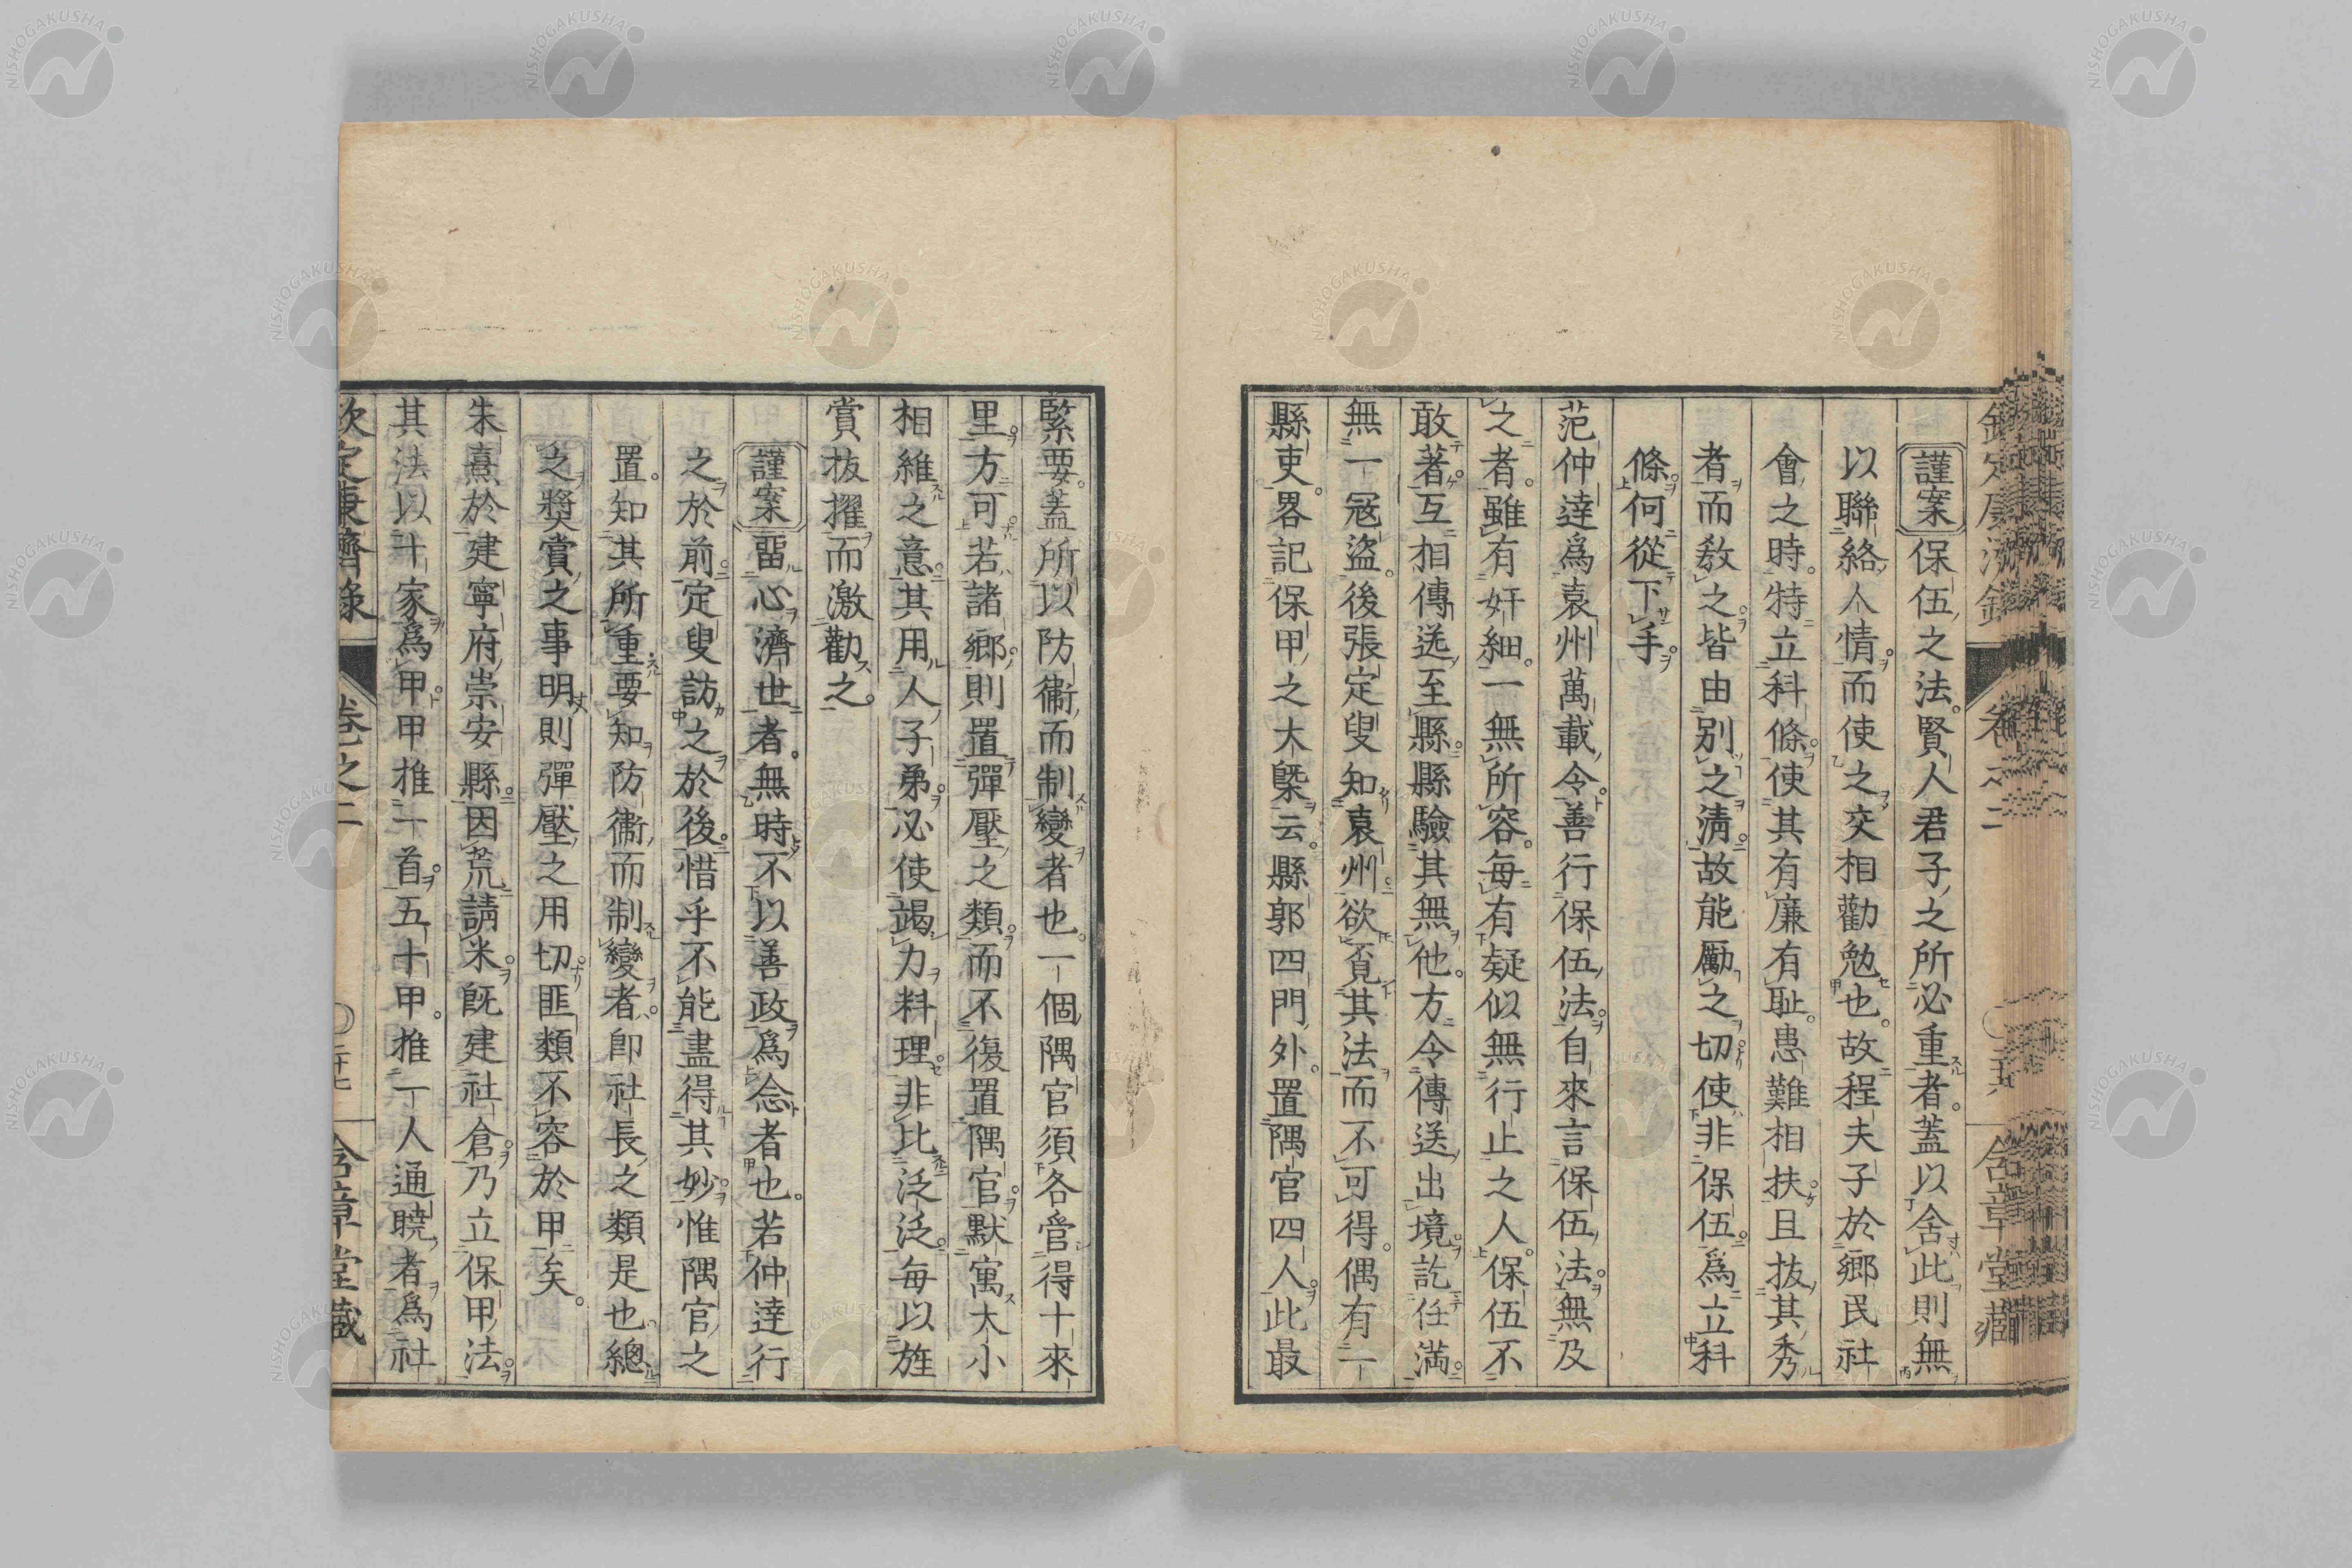 謹案保伍之法。賢人君子之所必重者。蓋以舍此則無
以聯絡人情。而使之交相勸勉也。故程夫子於鄉民社
會之時。特立科條。使其有廉有恥。患難相扶。且抜其秀
者而敎之。皆由別之淸。故能勵之切。使非保伍。爲立科
條。何從下手。
范仲達爲袁州萬載令。善行保伍法。自來言保伍法。無及
之者。雖有奸細。一無所容。每有疑似無行止之人。保伍不
敢著。互相傳送至縣。縣驗其無他。方令傳送出境。訖任滿。
無一冦盜。後張定叟知袁州。欲覔其法而不可得。偶有一
縣吏。畧記保甲之大槩云。縣郭四門外。置隅官四人。此最
緊要。蓋所以防衞而制變者也。一個隅官須各管得十來
里。方可。若諸鄉。則置彈壓之類。而不復置隅官。默寓大小
相維之意。其用人子弟。必使竭力料理。非比泛泛。每以旌
賞抜擢而激勸之。
謹案畱心濟世者。無時不以善政爲念者也。若仲達行
之於前。定叟訪之於後。惜乎不能盡得其妙。惟隅官之
置。知其所重要。知防衞而制變者。卽社長之類是也。總
之奬賞之事明則彈壓之用切。匪類不容於甲矣。
朱熹於建寧府崇安縣。因荒請米。旣建社倉。乃立保甲法。
其法以十家爲甲。甲推一首。五十甲。推一人通曉者爲社
欽定康濟錄 卷之二 〇二十七 含章堂藏
卷之二 含章堂藏
NISHOGAKUSHA